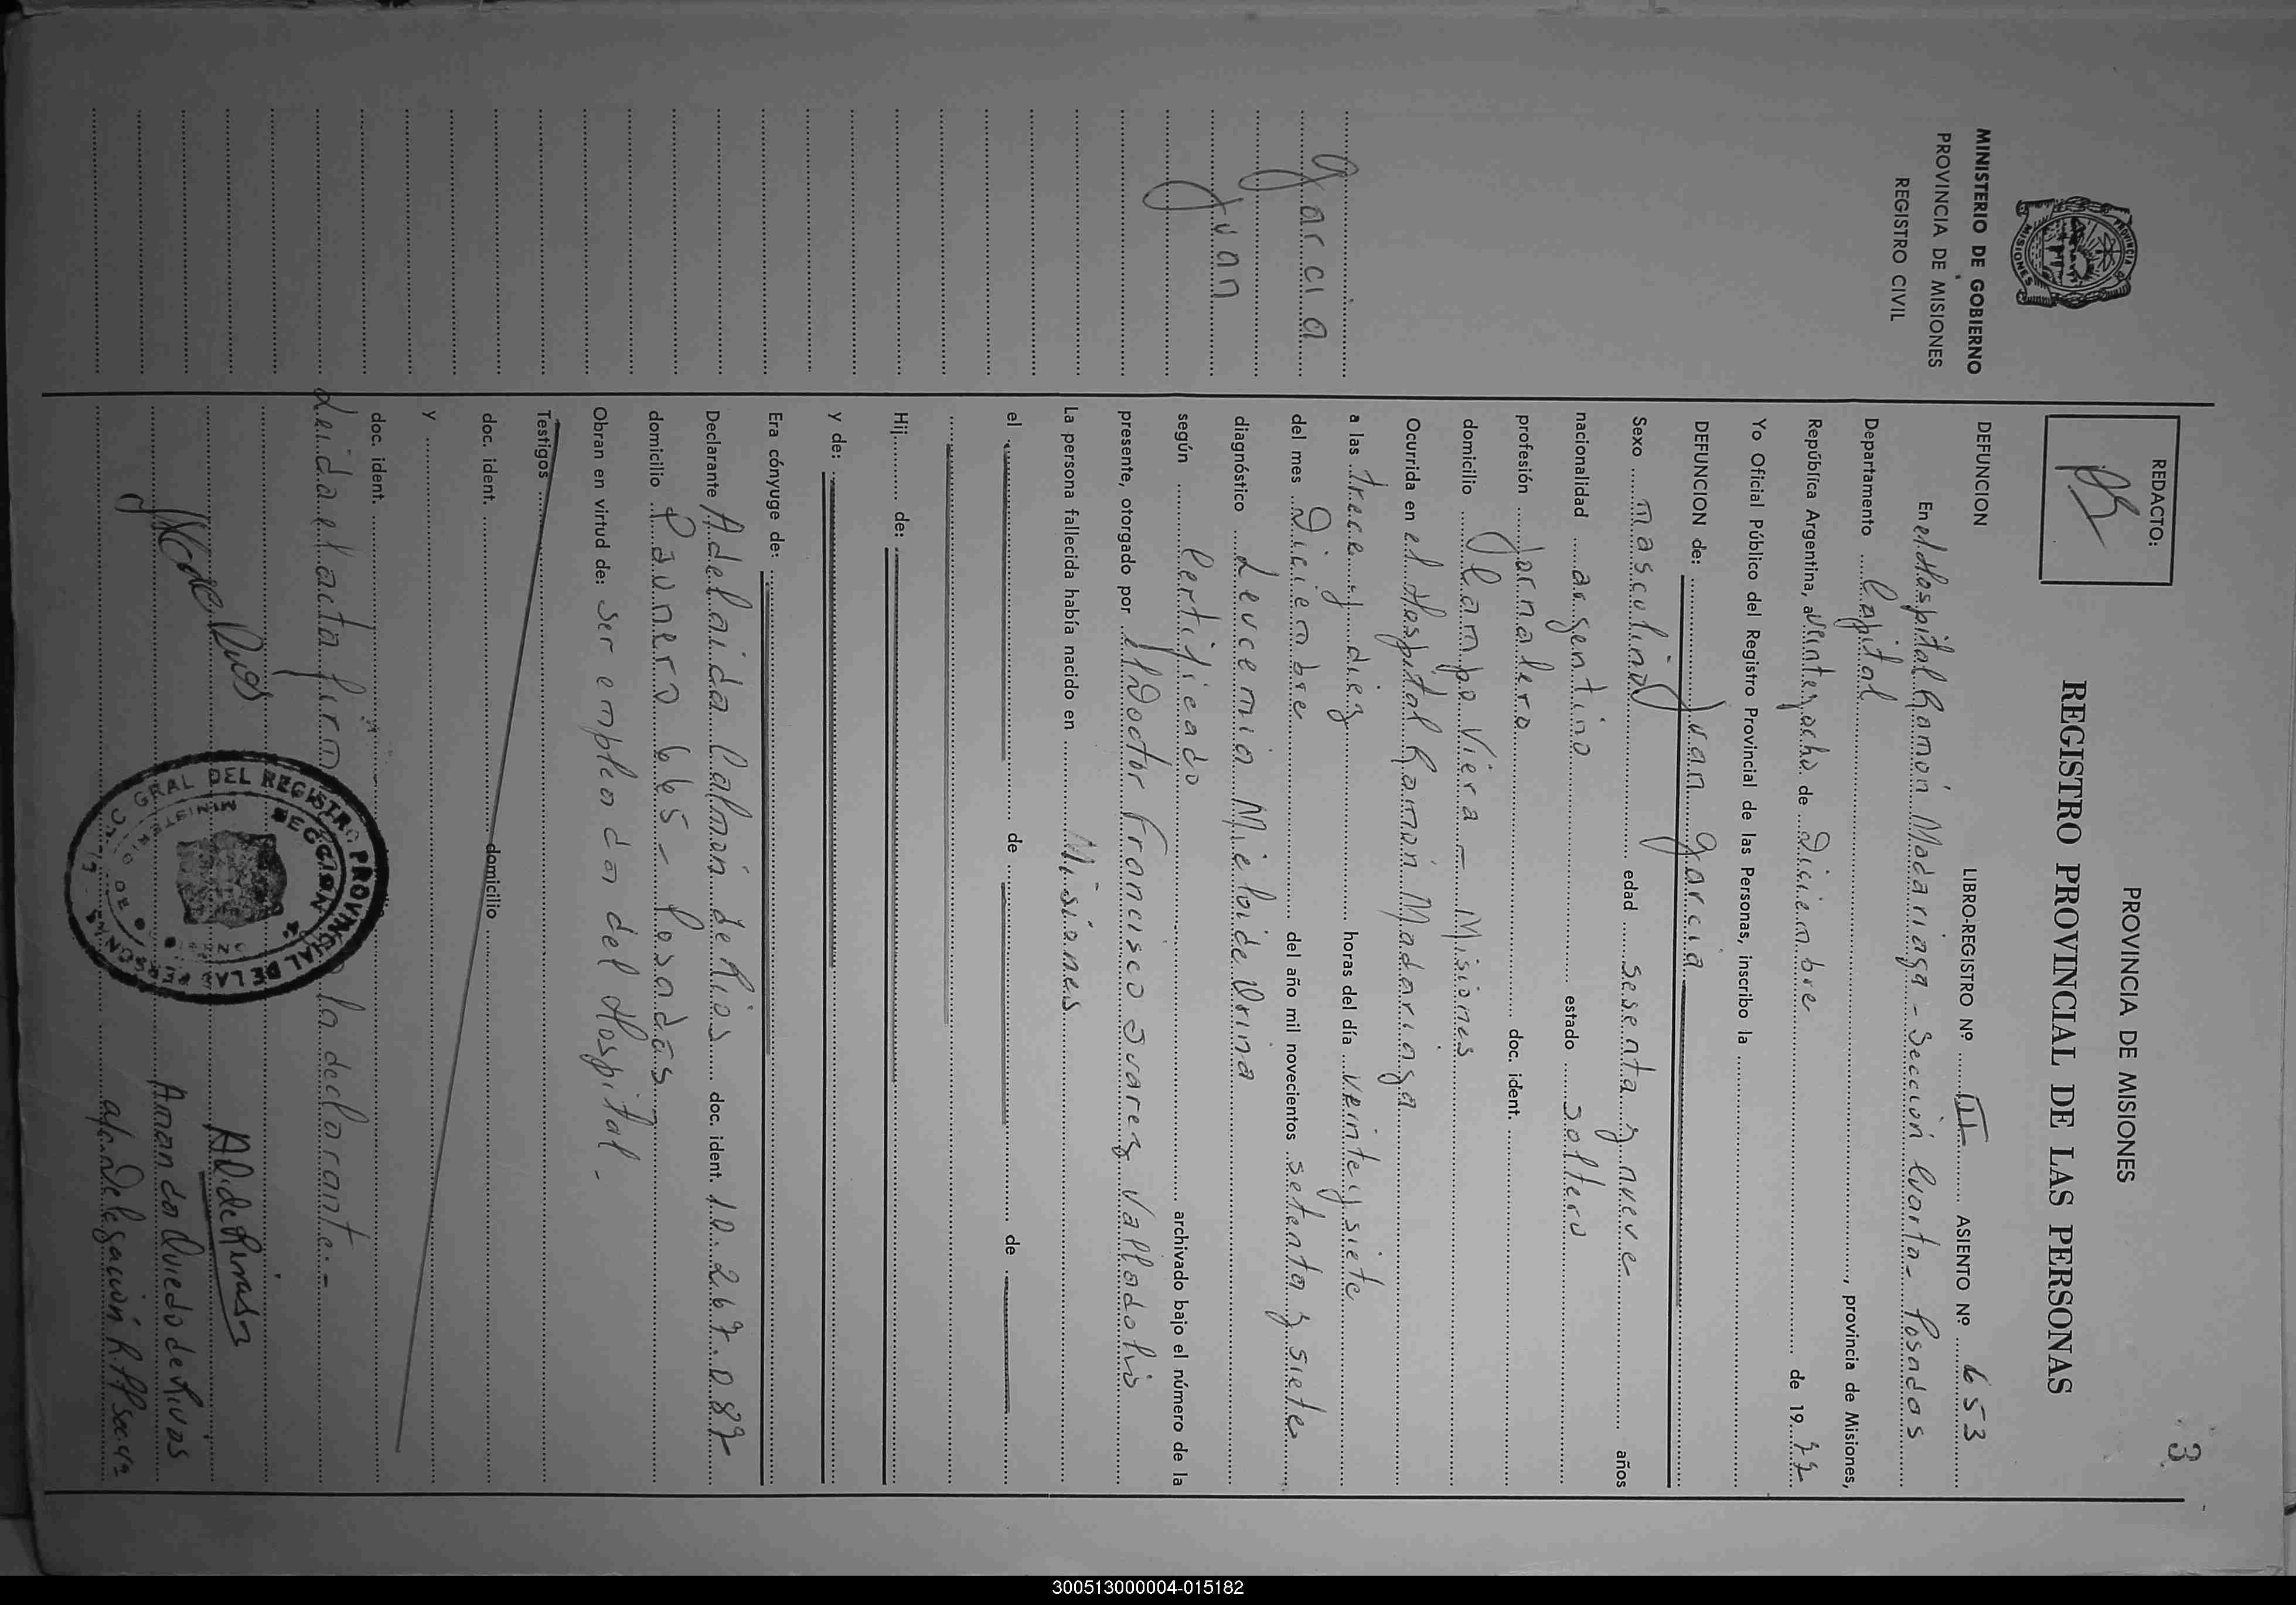 3
PROVINCIA DE MISIONES
REGISTRO PROVINCIAL DE LAS PERSONAS
REDACTO:
MINISTERIO DE GOBIERNO
PROVINCIA DE MISIONES
REGISTRO CIVIL
PROVINCIA DE MISIONES
Garcia
Juan
DEFUNCION LIBRO-REGISTRO Nº III ASIENTO Nº 653
En el Hospital Ramón Madariaga - Sección Cuarta - Posadas
Departamento Capital, provincia de Misiones,
República Argentina, a veinteyocho de Diciembre de 1977
Yo Oficial Público del Registro Provincial de las Personas, inscribo la
DEFUNCION de: Juan Garcia
Sexo masculino edad sesenta y nueve años
nacionalidad argentino estado soltero
profesión Jornalero doc. ident.
domicilio Olampo Viera - Misiones
Ocurrida en el Hospital Ramón Madariaga
a las trece y diez horas del día veinteysiete
del mes Diciembre del año mil novecientos setenta y siete
diagnóstico Leucemia Mieloide
según Certificado archivado bajo el número de la
presente, otorgado por el Doctor Francisco Suarez Valladolis
La persona fallecida había nacido en Misiones
el de de
Hij de:
y de:
Era cónyuge de:
Declarante Adelaida Colmán de Rios doc. ident. 10.267.087
domicilio Paunero 665 - Posadas
Obran en virtud de: ser empleada del Hospital.-
Testigos
doc. ident. domicilio
y
doc. ident.
Leida el acta firm la declarante.-
A C de Rios
Amanda Oviedo de Rivas
a/c. Delegación R.PP secc 4ª
GRAL DEL REGISTRO PROVINCIAL DE LAS PERSONAS
300513000004-015182